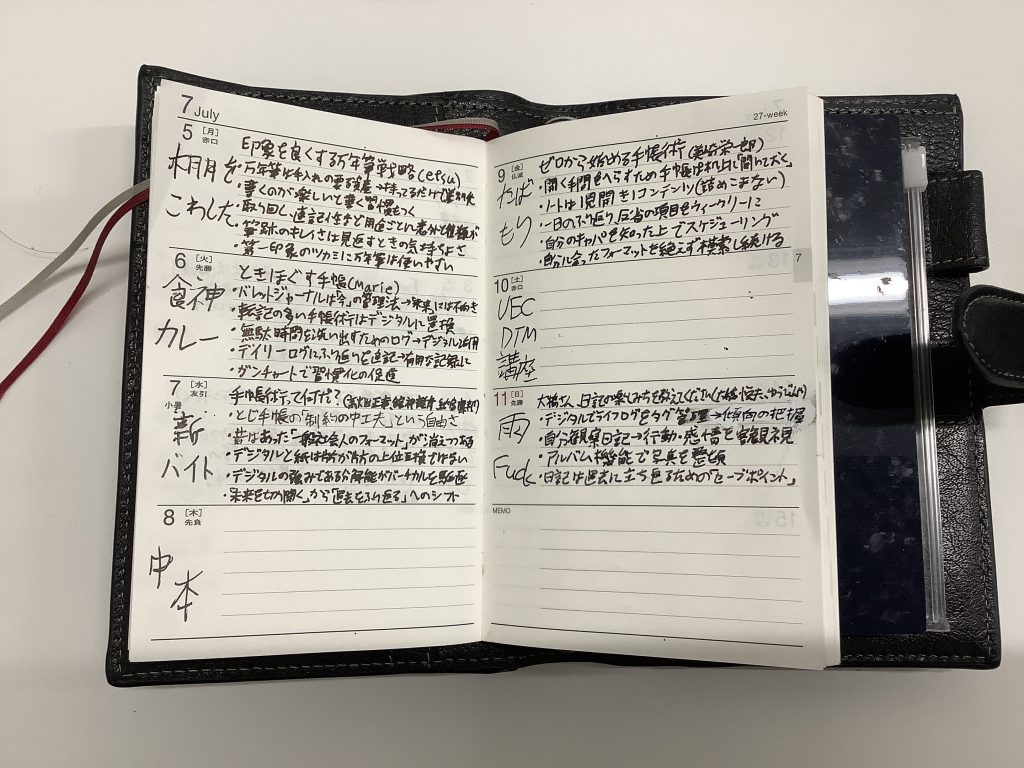 7 July
5 [月]
赤口
棚を
こわした
印象を良くする万年筆戦略(etsu)
・万年筆は手入れの要る
・書くのが楽しいと書く習慣もつく
・取り回し、速記性など用途ごとに
・筆跡のキレイさは見返すときの気持ちよさ
・第一印象のツカミに万年筆は使いやすい
6 [火]
先勝
食神
カレー
ときほぐす手帳(Marie)
・バレットジャーナルは「今」の管理法→未来には不向き
・転記の多い手帳術はデジタルに置換
・無駄時間を洗い出すためのログ→デジタル活用
・デイリーログにふり返りを追記→有用な記録に
・ガンチャートで習慣化の促進
7 [水]
友引
小暑
新
バイト
手帳術って何?
・とじ手帳の「制約の中工夫」という自由さ
・昔はあった「一般社会人のフォーマット」が消えつつある
・デジタルと紙は
・デジタルの強みである分解能がバーチカルを
・「未来を切り開く」から「過去をふり返る」へのシフト
8 [木]
先負
中本
27-week
9 [金]
仏滅
たば
もり
ゼロから始める手帳術
・開く手間をへらすため手帳は机上に開いておく。
・ノートは1見開き1コンテンツ(詰めこまない)
・一日のふり返り、反省の項目をウィークリーに
・自分のキャパを知った上でスケジューリング
・自分に会ったフォーマットを絶えず模索し続ける
7
10 [土]
赤口
UEC
DTM
講座
11 [日]
先勝
雨
Fuck
大橋さん、日記の楽しみ方を教えてください
・デジタルでライフログをタグ管理→傾向の把握
・自分観察日記→行動・感情を客観視
・アルバム機能で写真を整頓
・日記は過去に立ち返るための「セーブポイント」
MEMO